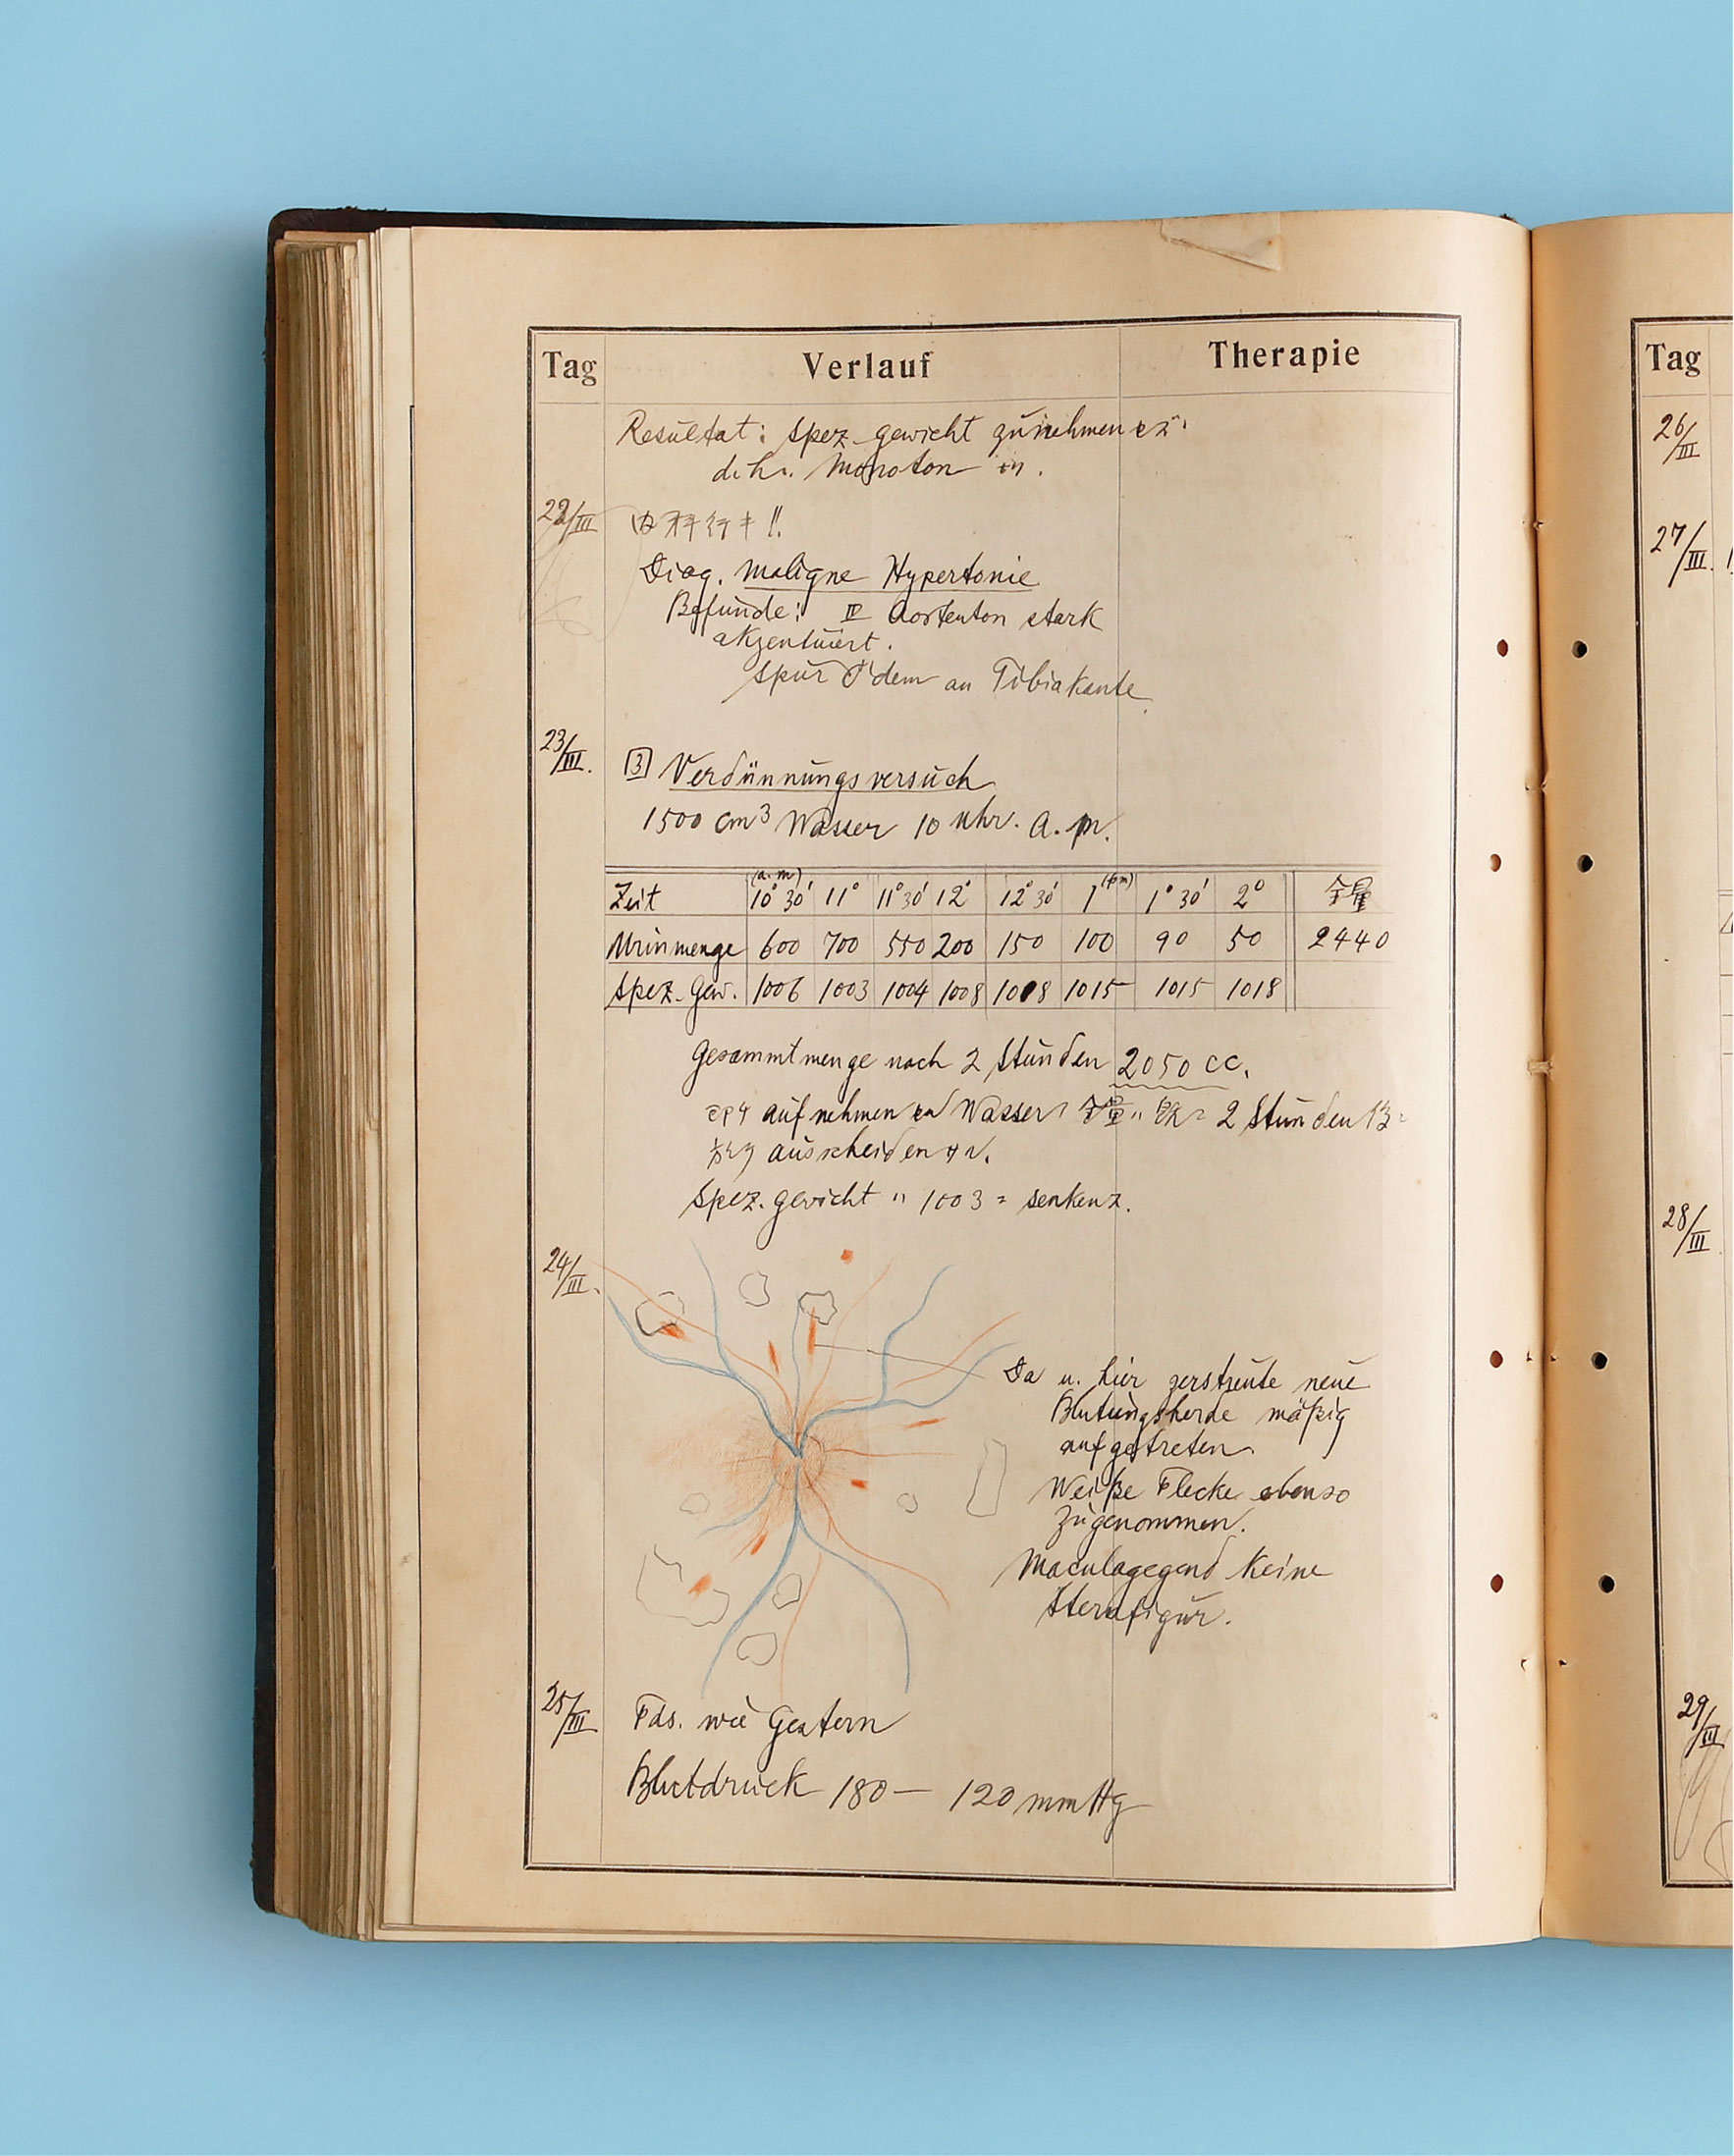 Tag Verlauf Therapie
Resultat: Spez. gewicht zunehmen セズ.
d.h. Monoton ナリ.
22/III 内科行キ!!
Diag. Maligne Hypertonie
Befunde: II Aortenton stark
akzentuiert.
Spur Ödem an Tibiakante
23/III. 3 Verdünnungsversuch
1500 cm³ Wasser 10 Uhr. A.m.
Zeit (a.m) 10°30' 11° 11°30' 12° 12°30' 1° (p.m) 1°30' 2° 全量
Urinmenge 600 700 550 200 150 100 90 50 2440
Spez. Gew. 1006 1003 1004 1008 1008 1015 1015 1018
Gesammtmenge nach 2 Stunden 2050 cc.
即チ aufnehmen セル Wasser 全量ハ 2 Stunden
ausscheiden サル.
Spez. gewicht ハ 1003 ニ senken ス.
24/III.
Da u. hier zerstreute neue
Blutungsherde mäßig
aufgetreten.
Weiße Flecke ebenso
zugenommen.
Maculagegend keine
Sternfigur.
25/III Fds. wie Gestern
Blutdruck 180 — 120 mmHg
Tag
26/III
27/III.
28/III
29/III